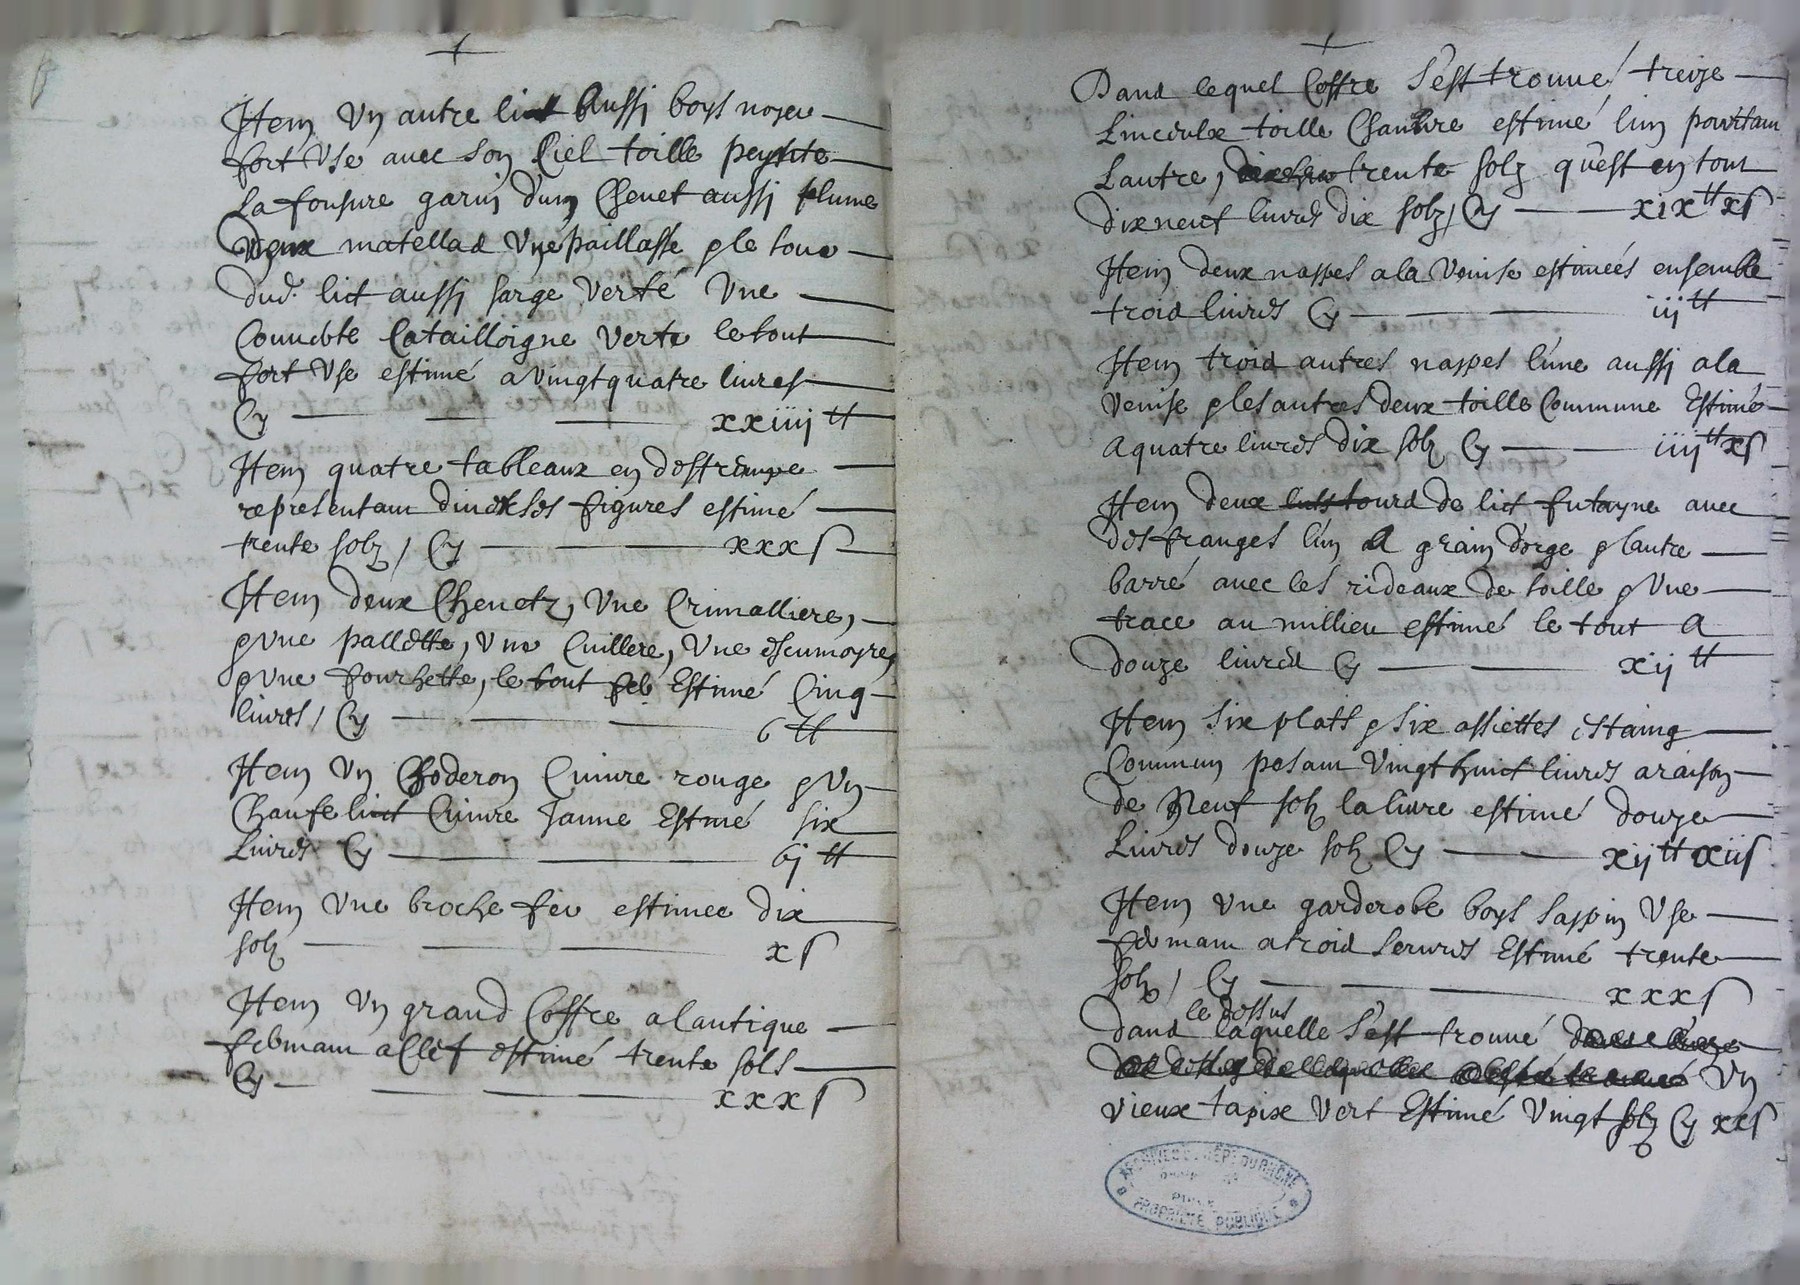 Item Un autre lict Aussi boys noyer
fort Usé avec son Ciel toille peynte
La fonsure garny d'un Chevet aussi plume
Deux matellas Une paillasse & le tour
dud. lict aussi sarge verte Une
Couverte Catailloigne verte le tout
fort Usé estimé a vingt quatre livres
Cy xxiiij ₶
Item quatre tableaux en destrampe
representant diverses figures estimé
trente solz / Cy xxx ſ
Item deux Chenetz, Une Crimalliere,
& Une pallette, Une Cuillere, Une escumoyre,
& Une fourchette, le tout fer Estimé Cinq
livres / Cy 6 ₶
Item Un Choderon Cuivre rouge & Un
Chaufe lict Cuivre Jaune Estimé six
Livres Cy 6j ₶
Item Une broche fer estimee dix
solz x ſ
Item Un grand Coffre a lantique
fermant a Clef estimé trente sols
Cy xxx ſ
Dans lequel Coffre s'est trouvé treize
Linceulx toille Chanvre estimé l'un portant
Lautre, trente solz qu'est en tout
dix neuf livres dix solz / Cy xix ₶ x ſ
Item deux nappes a la Venise estimées ensemble
trois livres Cy iij ₶
Item trois autres nappes l'une aussi a la
Venise & les autres deux toille Commune Estimé
A quatre livres dix solz Cy iiij ₶ x ſ
Item deux tours de lict futayne avec
des franges l'un A grain d'orge & lautre
barré avec les rideaux de toille & Une
trace au millieu estimé le tout A
douze livres Cy xij ₶
Item six plats & six assiettes estaing
Commun pesant Vingt huict livres a raison
de Neuf solz la livre estimé douze
Livres douze solz Cy xij ₶ xii ſ
Item Une garderobe boys sappin Usé
fermant a trois serrures Estimé trente
solz / Cy xxx ſ
le dessus
dans laquelle s'est trouvé
Un
vieux tapix vert Estimé Vingt solz Cy xx ſ
ARCHIVES DU DÉPT DU RHÔNE
PROPRIÉTÉ PUBLIQUE